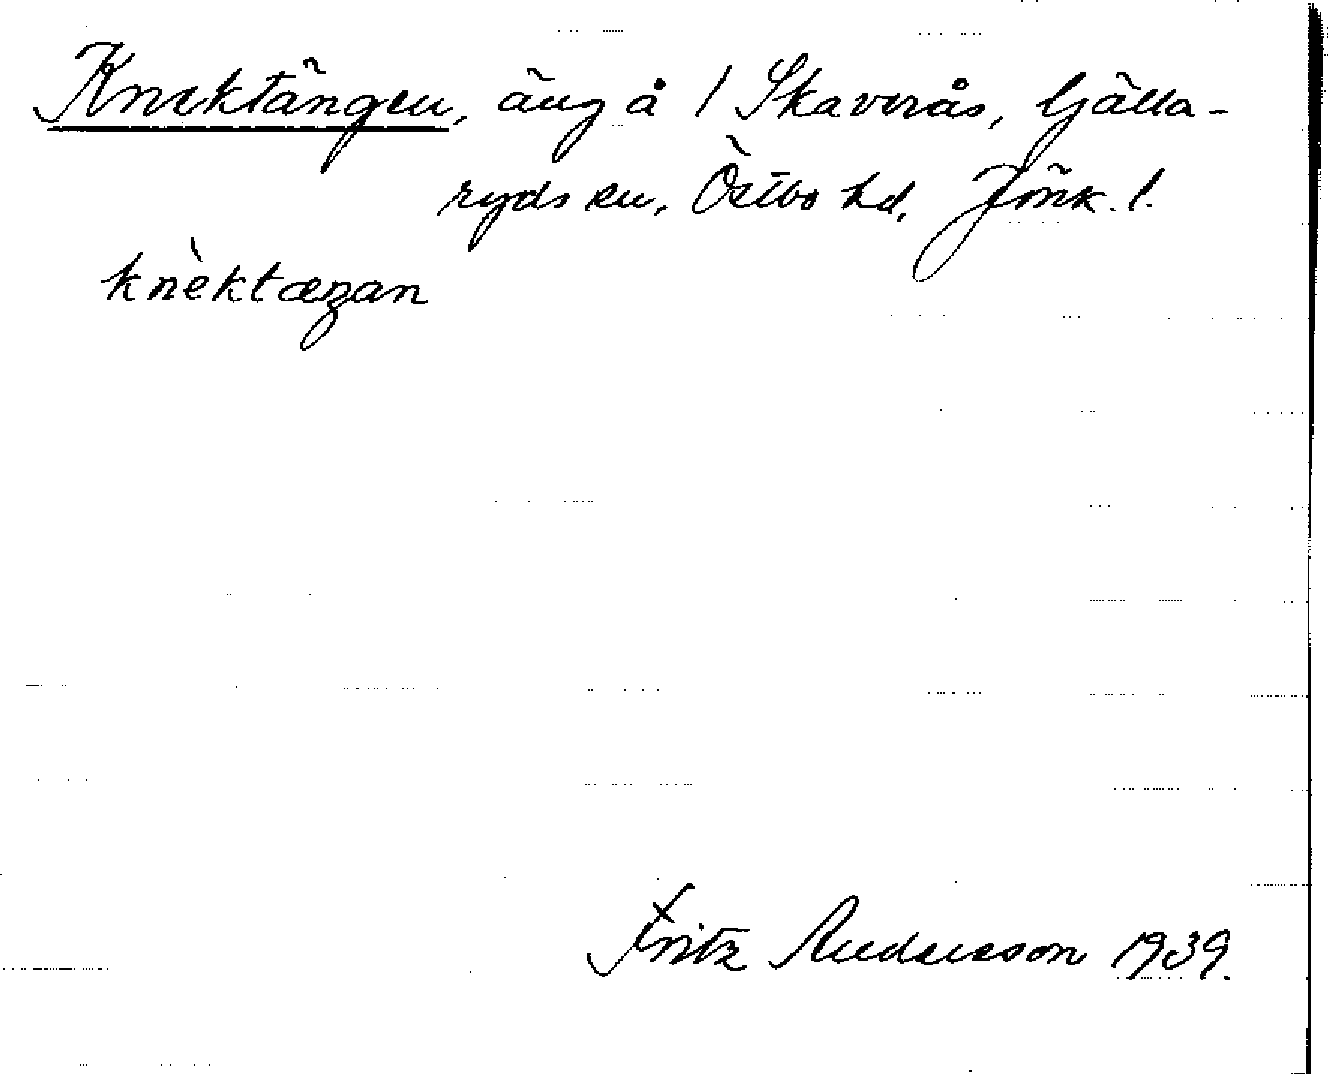 Knektängen, äng å 1 Skaverås, Gälla-
ryds sn, Östbo hd, Jönk. l.
knèktæŋan
Fritz Andersson 1939.